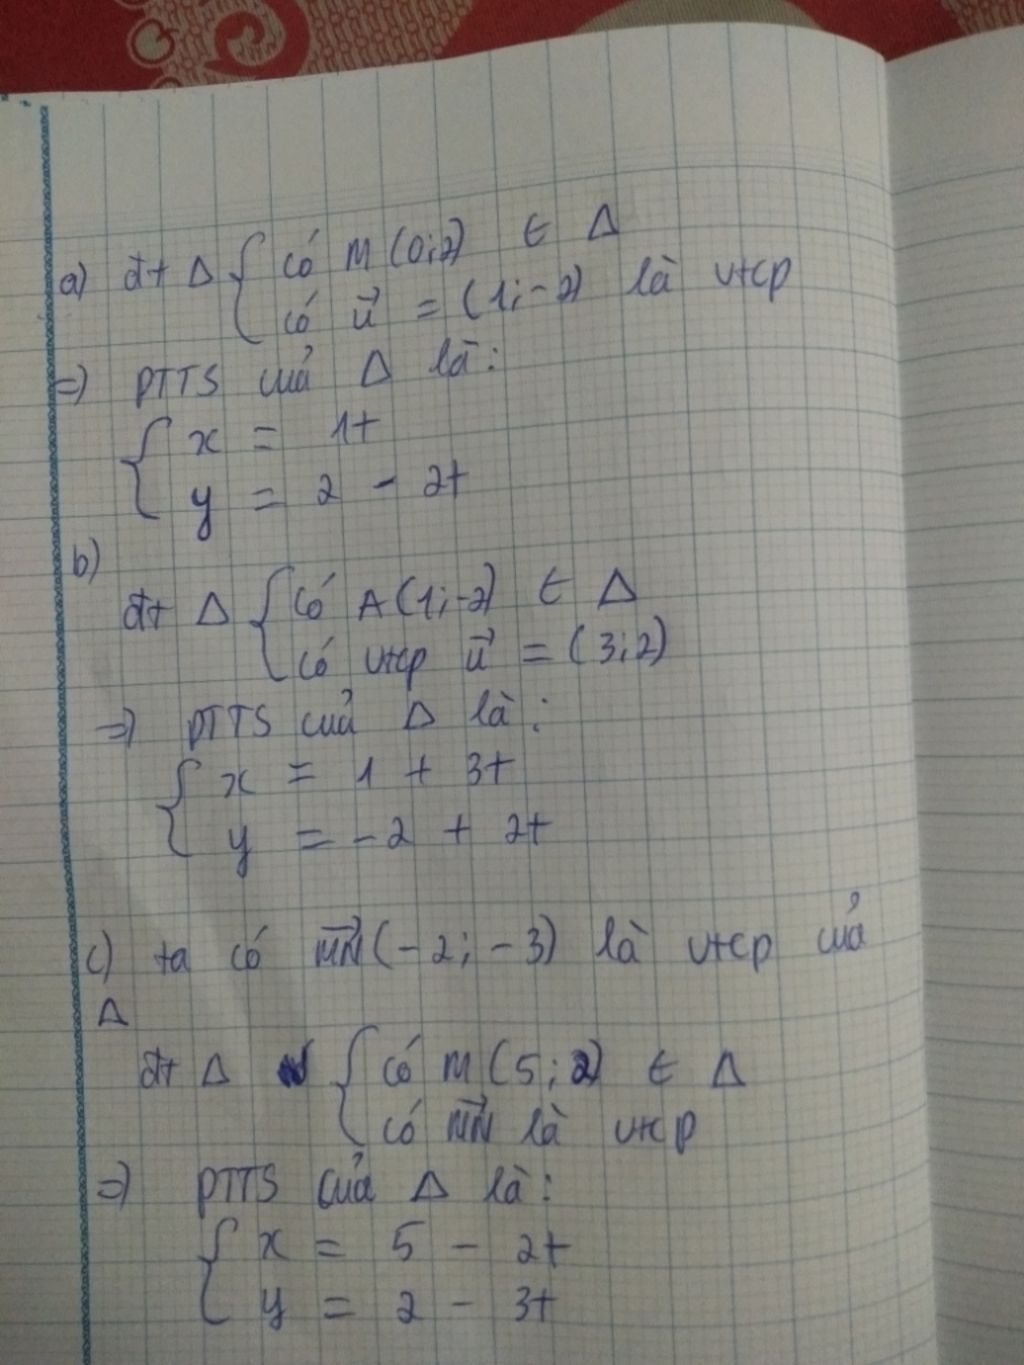 a) đt Δ { có M (0;2) ∈ Δ
có u⃗ = (1;-2) là vtcp
=) PTTS của Δ là:
{ x = 1t
y = 2 - 2t
b)
đt Δ { có A(1;-2) ∈ Δ
có vtcp u⃗ = (3;2)
=) PTTS của Δ là:
{ x = 1 + 3t
y = -2 + 2t
c) ta có M⃗N⃗(-2; -3) là vtcp của
Δ
đt Δ { có M (5; 2) ∈ Δ
có M⃗N⃗ là vtcp
=) PTTS của Δ là:
{ x = 5 - 2t
y = 2 - 3t